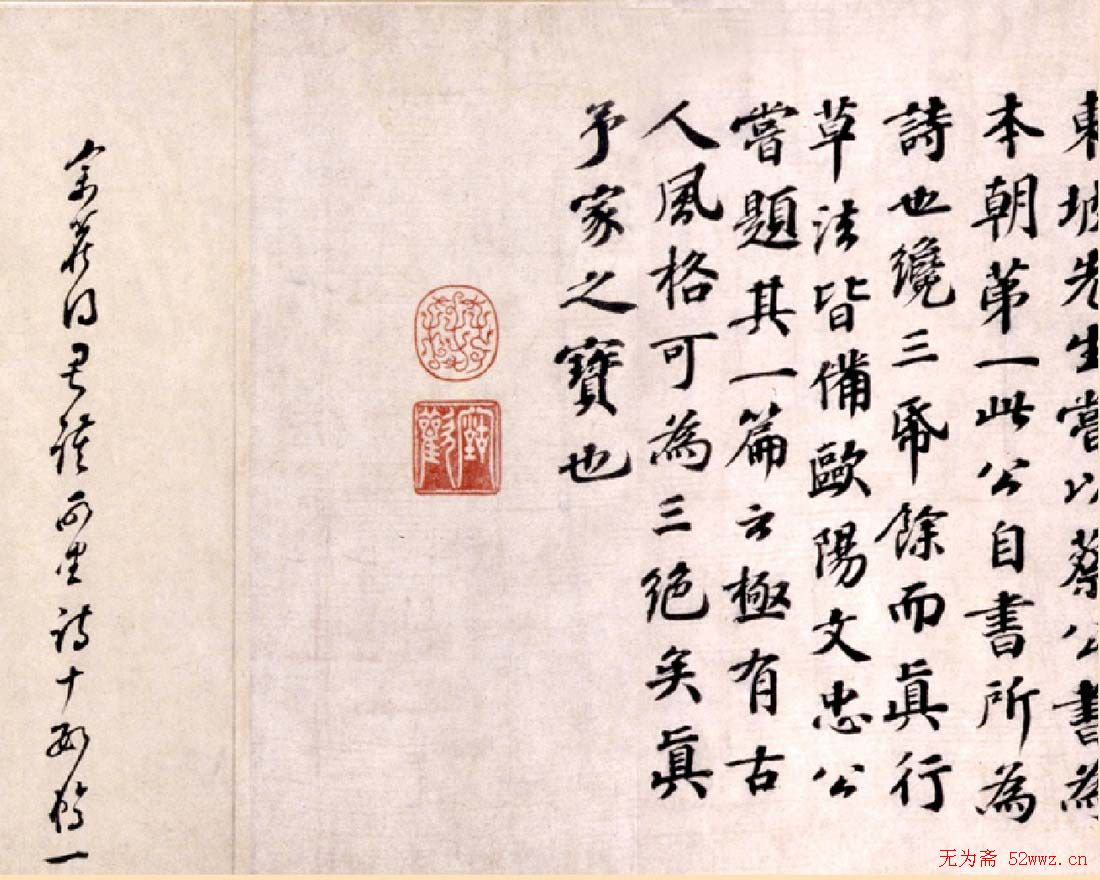 東坡先生嘗以蔡公書為
本朝苐一此公自書所為
詩也纔三帋餘而眞行
草法皆備歐陽文忠公
嘗題其一篇云極有古
人風格可為三絶矣眞
予家之寶也
余得君謨詩十一
无为斋 52wwz.cn